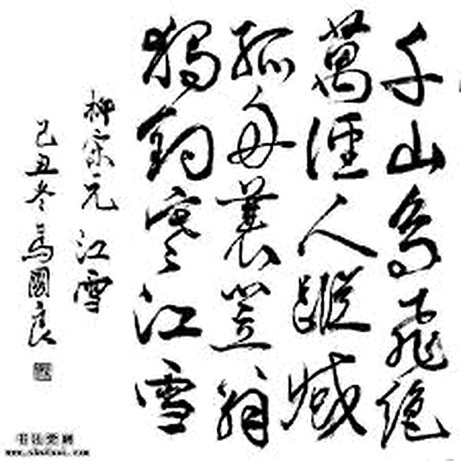 千山鸟飛絶
萬徑人蹤滅
孤舟蓑笠翁
獨釣寒江雪
柳宗元 江雪
己丑冬馬國良
书法空间